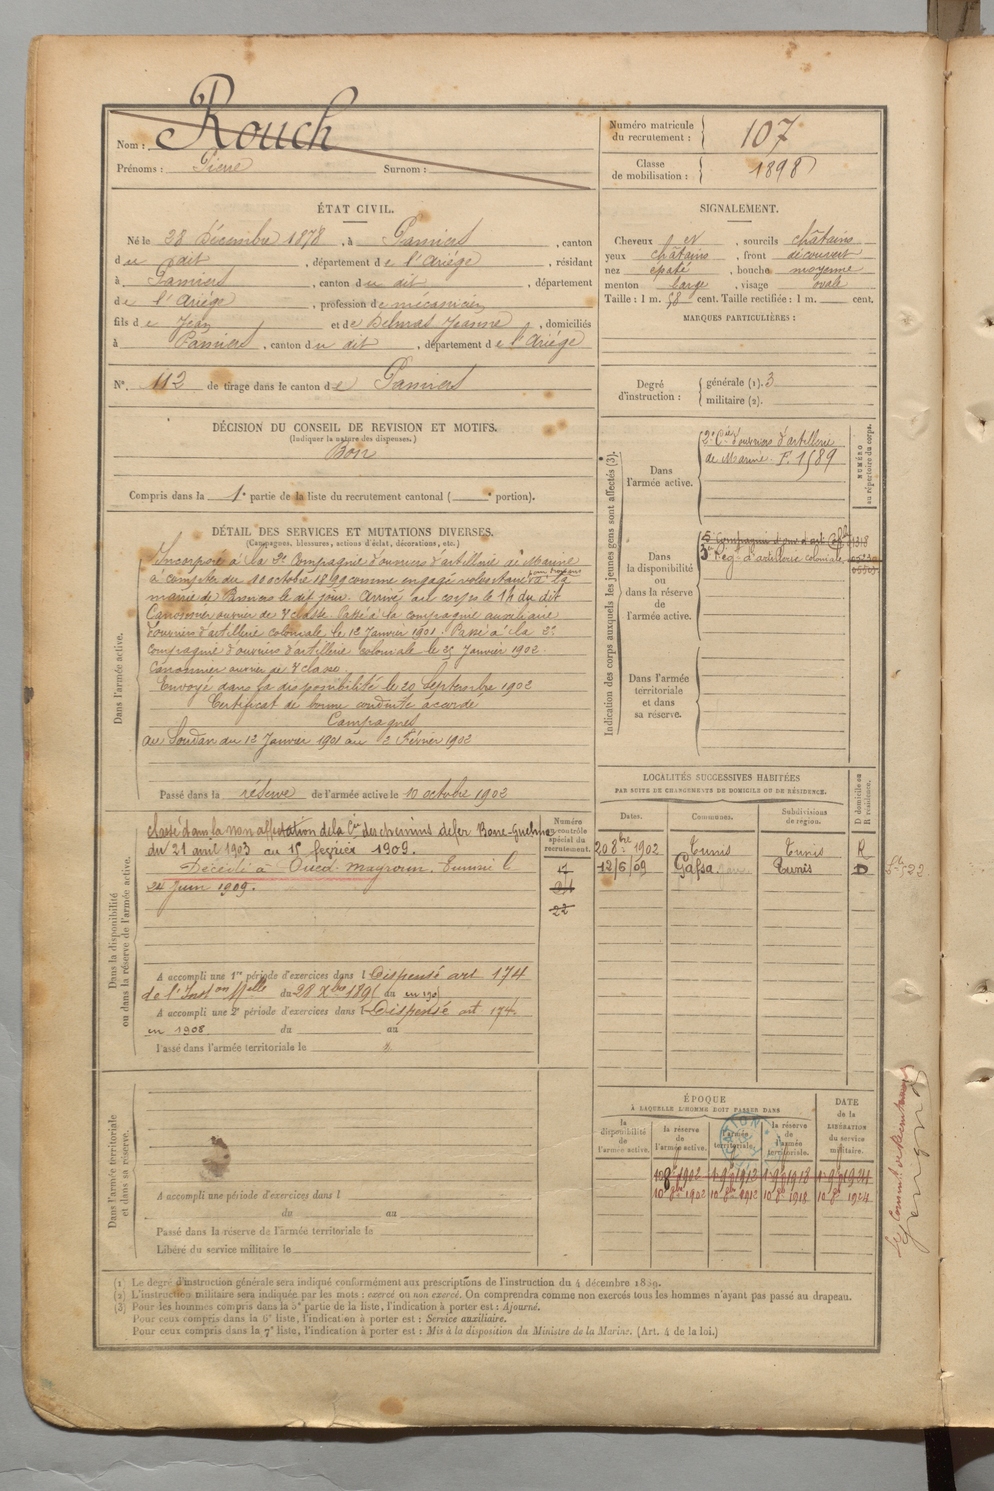 Nom : Rouch
Prénoms : Pierre Surnom :
Numéro matricule du recrutement : 107
Classe de mobilisation : 1898
ÉTAT CIVIL.
Né le 28 Décembre 1878, à Pamiers, canton
du dit, département de l'Ariége, résidant
à Pamiers, canton du dit, département
de l'Ariége, profession de mécanicien
fils de Jean et de Delmas Jeanne, domiciliés
à Pamiers, canton du dit, département de l'Ariége
N°. 112 de tirage dans le canton de Pamiers
SIGNALEMENT.
Cheveux et, sourcils châtains
yeux châtains, front découvert
nez épaté, bouche moyenne
menton large, visage ovale
Taille : 1 m. 58 cent. Taille rectifiée : 1 m. cent.
MARQUES PARTICULIÈRES :
Degré d'instruction : générale (1). 3
militaire (2).
DÉCISION DU CONSEIL DE REVISION ET MOTIFS.
(Indiquer la nature des dispenses.)
Bon
Compris dans la 1e partie de la liste du recrutement cantonal ( e portion).
Indication des corps auxquels les jeunes gens sont affectés (3).
NUMÉRO au répertoire du corps.
Dans l'armée active.
2e Cie d'ouvriers d'artillerie
de Marine F. 1589
Dans la disponibilité ou dans la réserve de l'armée active.
5e Compagnie d'ouv d'art
3e Regt d'artillerie coloniale
Dans l'armée territoriale et dans sa réserve.
DÉTAIL DES SERVICES ET MUTATIONS DIVERSES.
(Campagnes, blessures, actions d'éclat, décorations, etc.)
Dans l'armée active.
Incorporé à la Compagnie d'ouvriers d'artillerie de Marine
à compter du 10 octobre 1899 comme engagé volontaire à la
mairie de Pamiers le dit jour. Arrivé au corps le 14 du dit
Canonnier ouvrier de 2e classe. Passé à la compagnie auxiliaire
d'ouvriers d'artillerie coloniale le 12 Janvier 1901. Passé à la 2e
compagnie d'ouvriers d'artillerie coloniale le 25 Janvier 1902.
Canonnier ouvrier de 2e classe.
Envoyé dans la disponibilité le 20 Septembre 1902
Certificat de bonne conduite accordé
Campagnes
au Soudan du 12 Janvier 1901 au 2 Février 1902
Passé dans la réserve de l'armée active le 10 octobre 1902
Dans la disponibilité ou dans la réserve de l'armée active.
Numéro au contrôle spécial du recrutement.
classé dans la non affectation de la Cie des chemins de fer Bone-Guelma
du 21 avril 1903 au 15 fevrier 1909.
Décédé à Oued Mazroun. Tunisie le
24 Juin 1909.
A accompli une 1re période d'exercices dans l Dispensé art 174
de l'Inston Melle du 28 Xbre 1895 au en 1905
A accompli une 2e période d'exercices dans l Dispensé art 174
en 1908 du au
Passé dans l'armée territoriale le
LOCALITÉS SUCCESSIVES HABITÉES
PAR SUITE DE CHANGEMENTS DE DOMICILE OU DE RÉSIDENCE.
Dates. Communes. Subdivisions de région. D domicile ou R résidence.
20 8bre 1902 Tunis Tunis R
12/6/09 Gafsa Tunis D
Dans l'armée territoriale et dans sa réserve.
A accompli une période d'exercices dans l
du au
Passé dans la réserve de l'armée territoriale le
Libéré du service militaire le
ÉPOQUE
À LAQUELLE L'HOMME DOIT PASSER DANS
DATE de la LIBÉRATION du service militaire.
la disponibilité de l'armée active. la réserve de l'armée active. l'armée territoriale. la réserve de l'armée territoriale.
1902 1912 1918 1924
10 8bre 1902 10 8bre 1912 10 8bre 1918 10 8bre 1924
(1) Le degré d'instruction générale sera indiqué conformément aux prescriptions de l'instruction du 4 décembre 1889.
(2) L'instruction militaire sera indiquée par les mots : exercé ou non exercé. On comprendra comme non exercés tous les hommes n'ayant pas passé au drapeau.
(3) Pour les hommes compris dans la 5e partie de la liste, l'indication à porter est : Ajourné.
Pour ceux compris dans la 6e liste, l'indication à porter est : Service auxiliaire.
Pour ceux compris dans la 7e liste, l'indication à porter est : Mis à la disposition du Ministre de la Marine. (Art. 4 de la loi.)